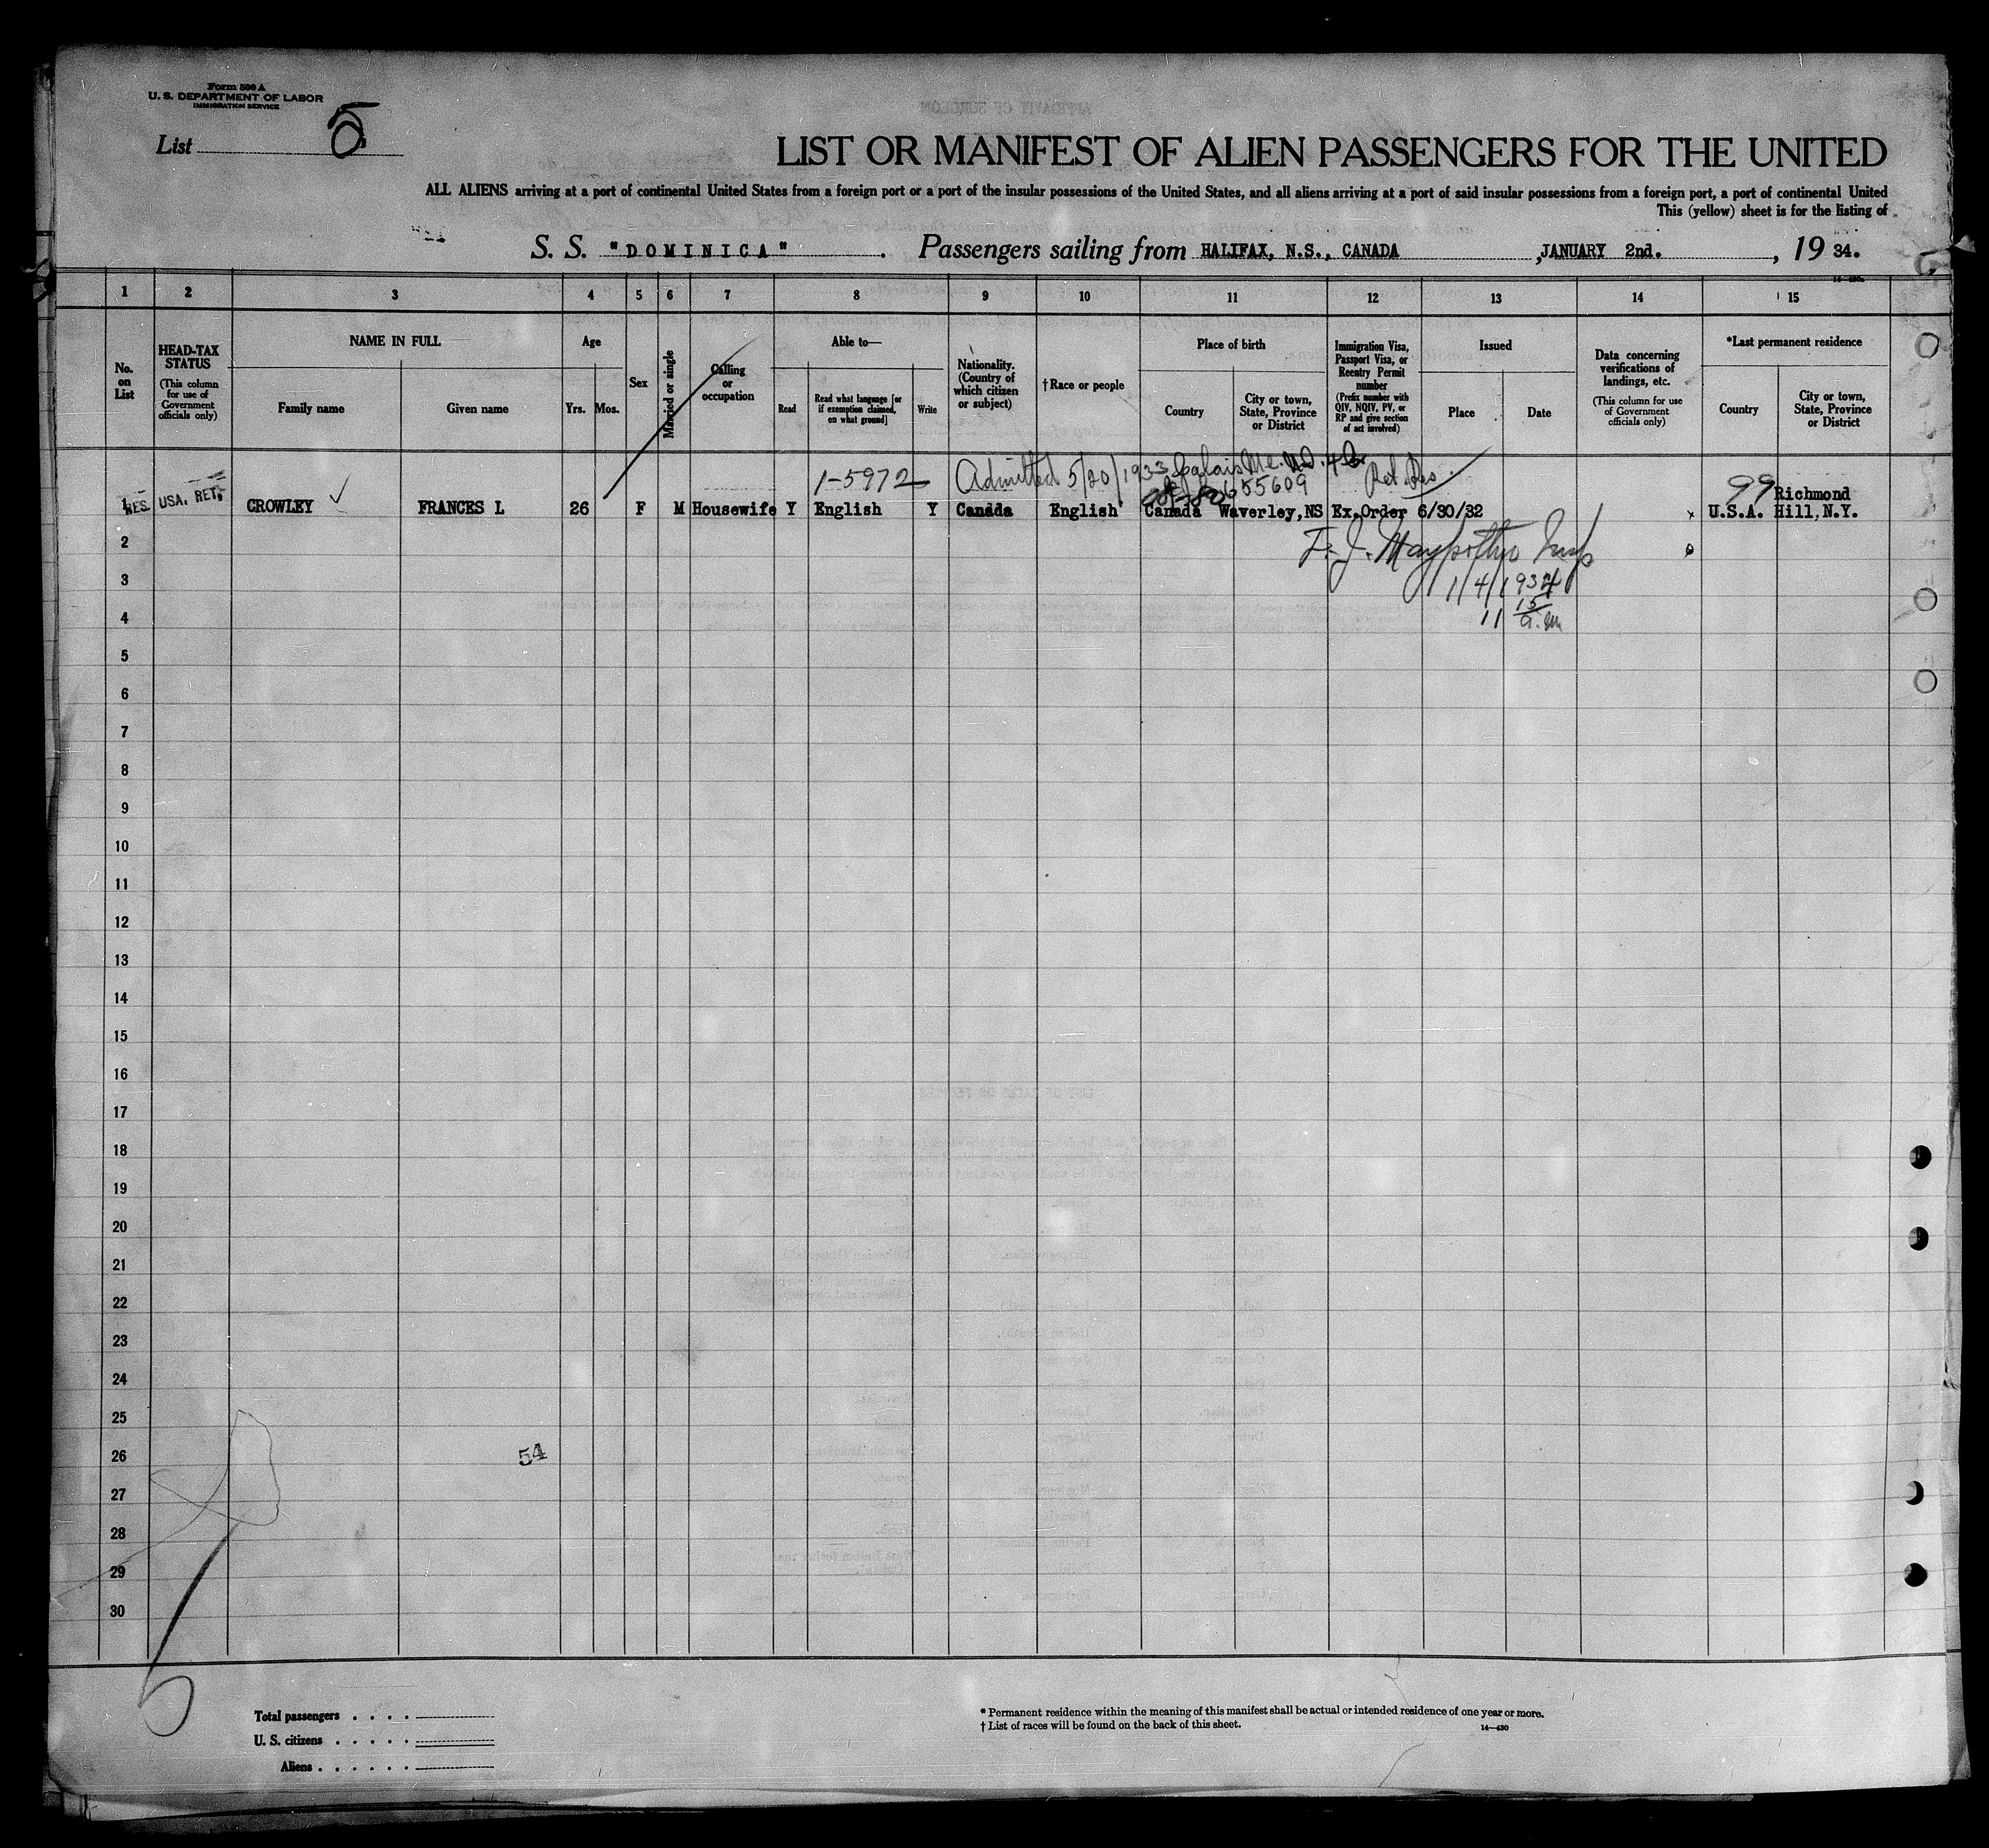 Form 500 A
U. S. DEPARTMENT OF LABOR
IMMIGRATION SERVICE
List 5
LIST OR MANIFEST OF ALIEN PASSENGERS FOR THE UNITED
ALL ALIENS arriving at a port of continental United States from a foreign port or a port of the insular possessions of the United States, and all aliens arriving at a port of said insular possessions from a foreign port, a port of continental United
This (yellow) sheet is for the listing of
S. S. "DOMINICA". Passengers sailing from HALIFAX, N.S., CANADA ,JANUARY 2nd. , 19 34.
1 2 3 4 5 6 7 8 9 10 11 12 13 14 15
No. on List
HEAD-TAX STATUS
(This column for use of Government officials only)
NAME IN FULL
Family name
Given name
Age
Yrs. Mos.
Sex
Married or single
Calling or occupation
Able to—
Read
Read what language [or if exemption claimed, on what ground]
Write
Nationality. (Country of which citizen or subject)
†Race or people
Place of birth
Country
City or town, State, Province or District
Immigration Visa, Passport Visa, or Reentry Permit number
(Prefix number with QIV, NQIV, PV, or RP and give section of act involved)
Issued
Place
Date
Data concerning verifications of landings, etc.
(This column for use of Government officials only)
*Last permanent residence
Country
City or town, State, Province or District
1-5972 Admitted 5/20/1933 Calais Me. Ret Res
655609
99 Richmond
1 RES. USA. RET. CROWLEY FRANCES L 26 F M Housewife Y English Y Canada English Canada Waverley, NS Ex.Order 6/30/32 U.S.A. Hill, N.Y.
2
F. J. Insp
3
1/4/1934
4
11 15 a.m
5
6
7
8
9
10
11
12
13
14
15
16
17
18
19
20
21
22
23
24
25
26
54
27
28
29
30
Total passengers . . . .
U. S. citizens . . . . .
Aliens . . . . . .
* Permanent residence within the meaning of this manifest shall be actual or intended residence of one year or more.
† List of races will be found on the back of this sheet.
14—430